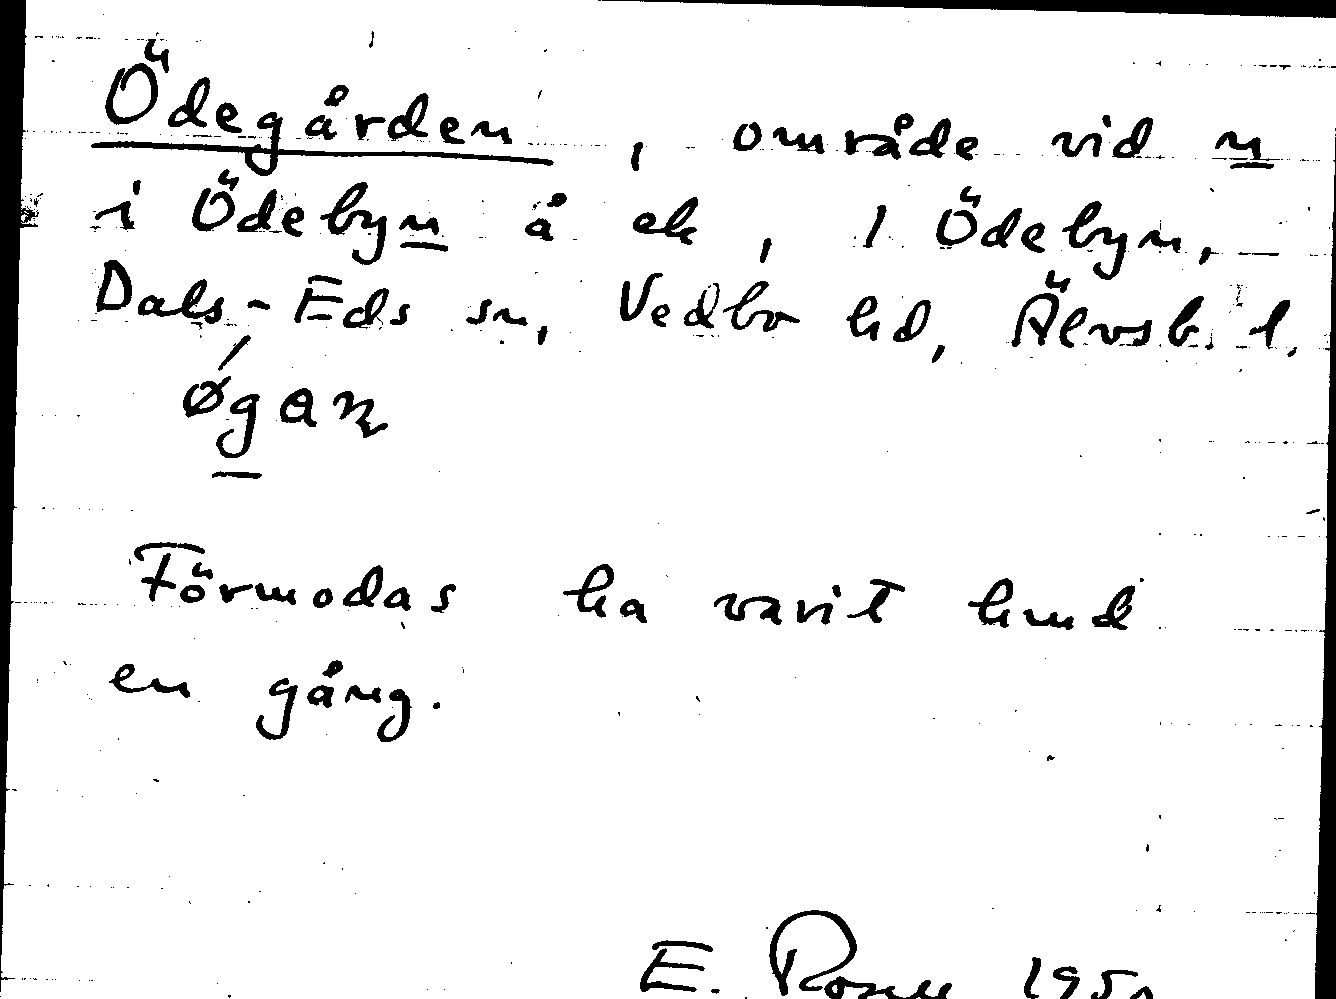 Ödegården, område vid n
i Ödebyn å ek, 1 Ödebyn,
Dals-Eds sn, Vedbo hd, Älvsb. l.
øgaɳ
Förmodas ha varit hmd
en gång.
E.